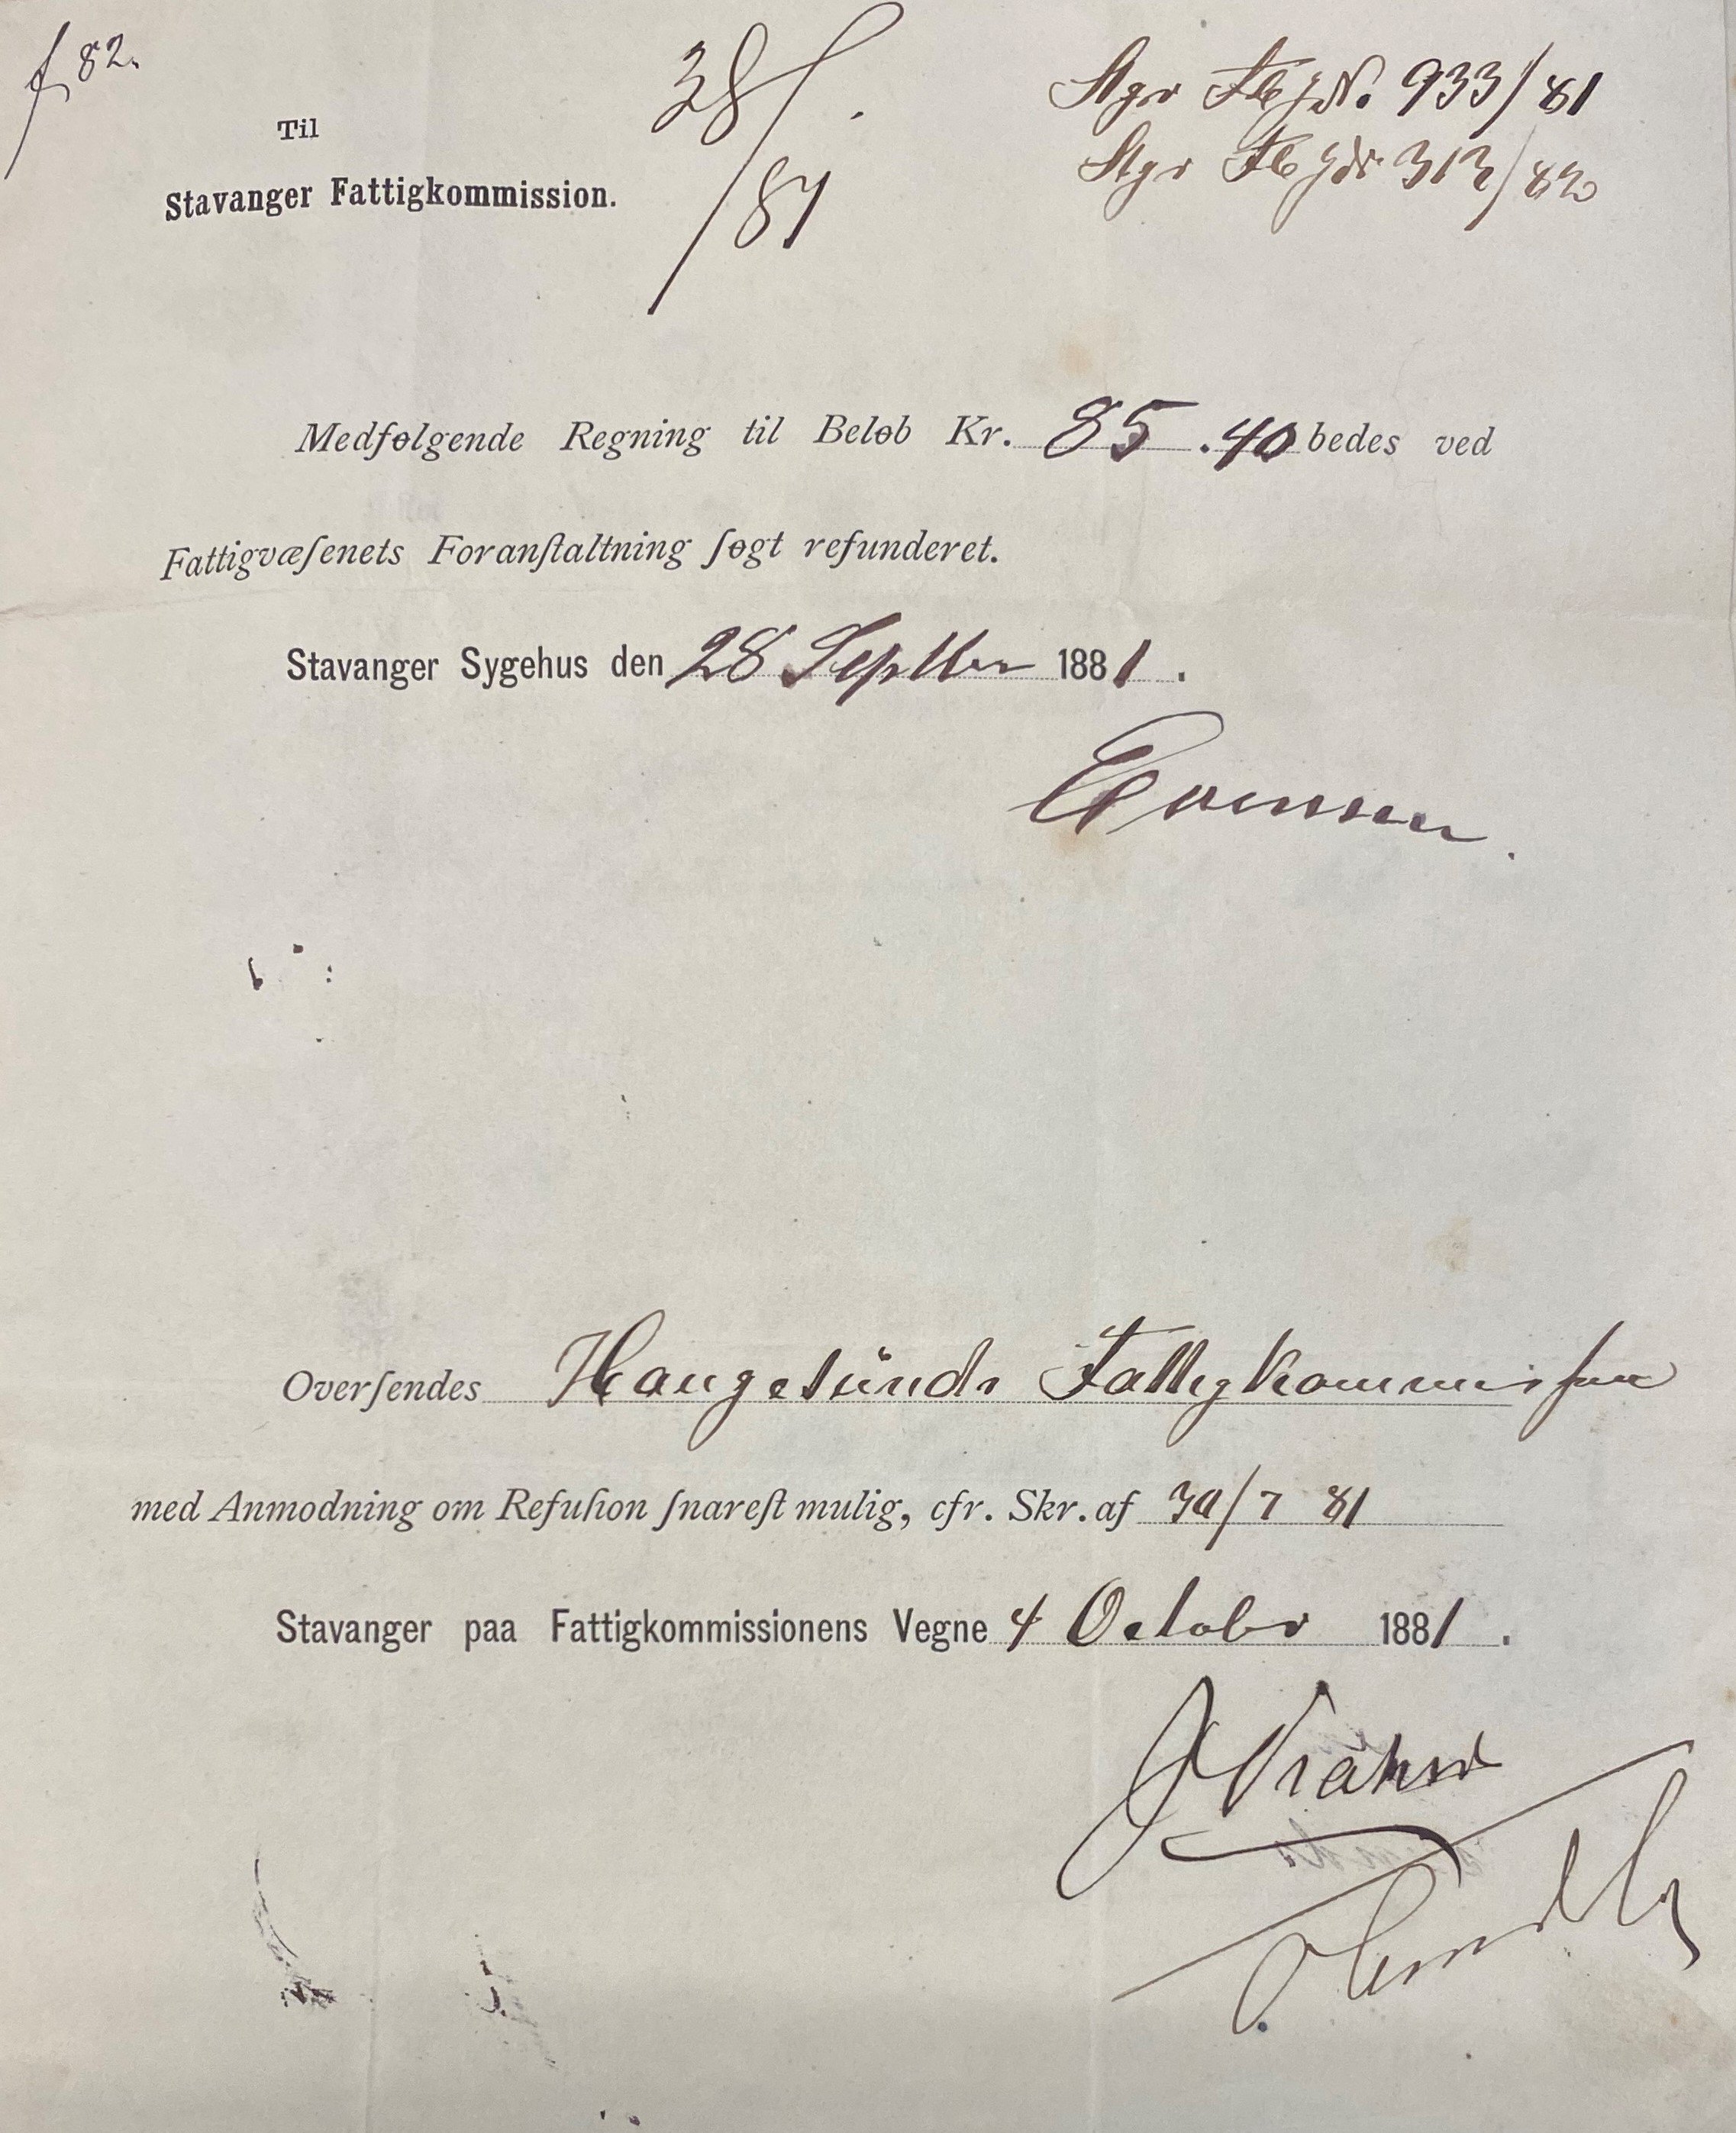 f 82.
38/.
/81
Stgr Fb JN. 933/81
Stgr Fb JN 312/82
Til
Stavanger Fattigkommission.
Medfølgende Regning til Beløb Kr. 85.40 bedes ved
Fattigvæſenets Foranſtaltning ſøgt refunderet.
Stavanger Sygehus den 28 Septbr 1881.
Overſendes Haugesunds Fattigkommission
med Anmodning om Refuſion ſnareſt mulig, cfr. Skr. af 30/7 81
Stavanger paa Fattigkommissionens Vegne 4 Octobr 1881.